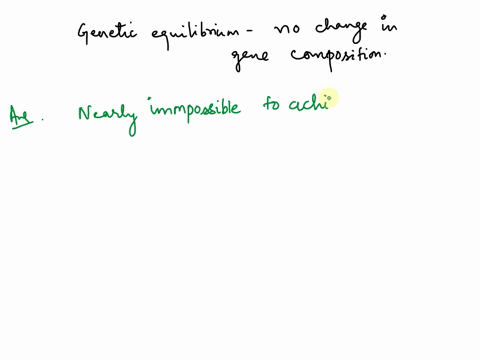 Genetic equilibrium - no change in
gene composition.
Ans. Nearly immpossible to achi